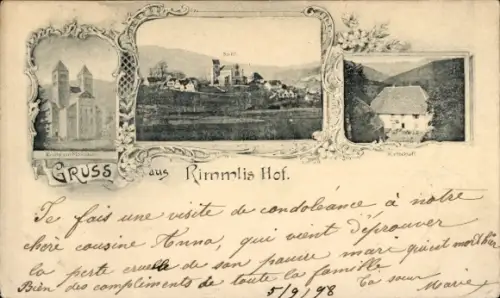 GRUSS aus Rimmlis Hof.
Je fais une visite de condoléance à notre
chère cousine Anna, qui vient d'éprouver
la perte cruelle de son pauvre mari qui est mort hier
Bien des compliments de toute la famille
5/9/98 Ta sœur Marie